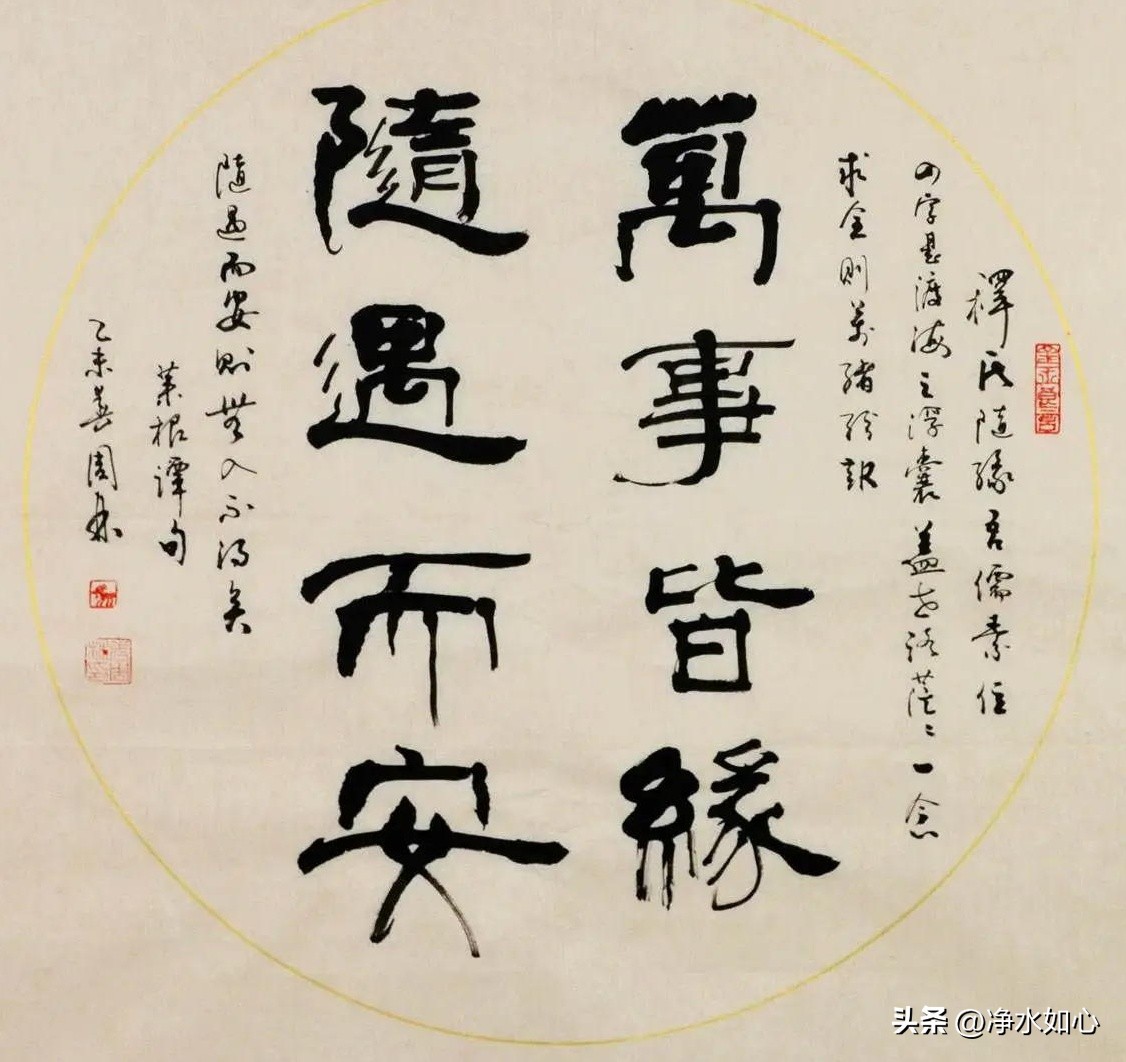 釋氏隨緣吾儒素位
四字是渡海之浮囊蓋世路茫〻一念
求全則萬緒紛起
萬事皆緣
隨遇而安
隨遇而安則無入不得矣
菜根譚句
乙未
头条 @净水如心